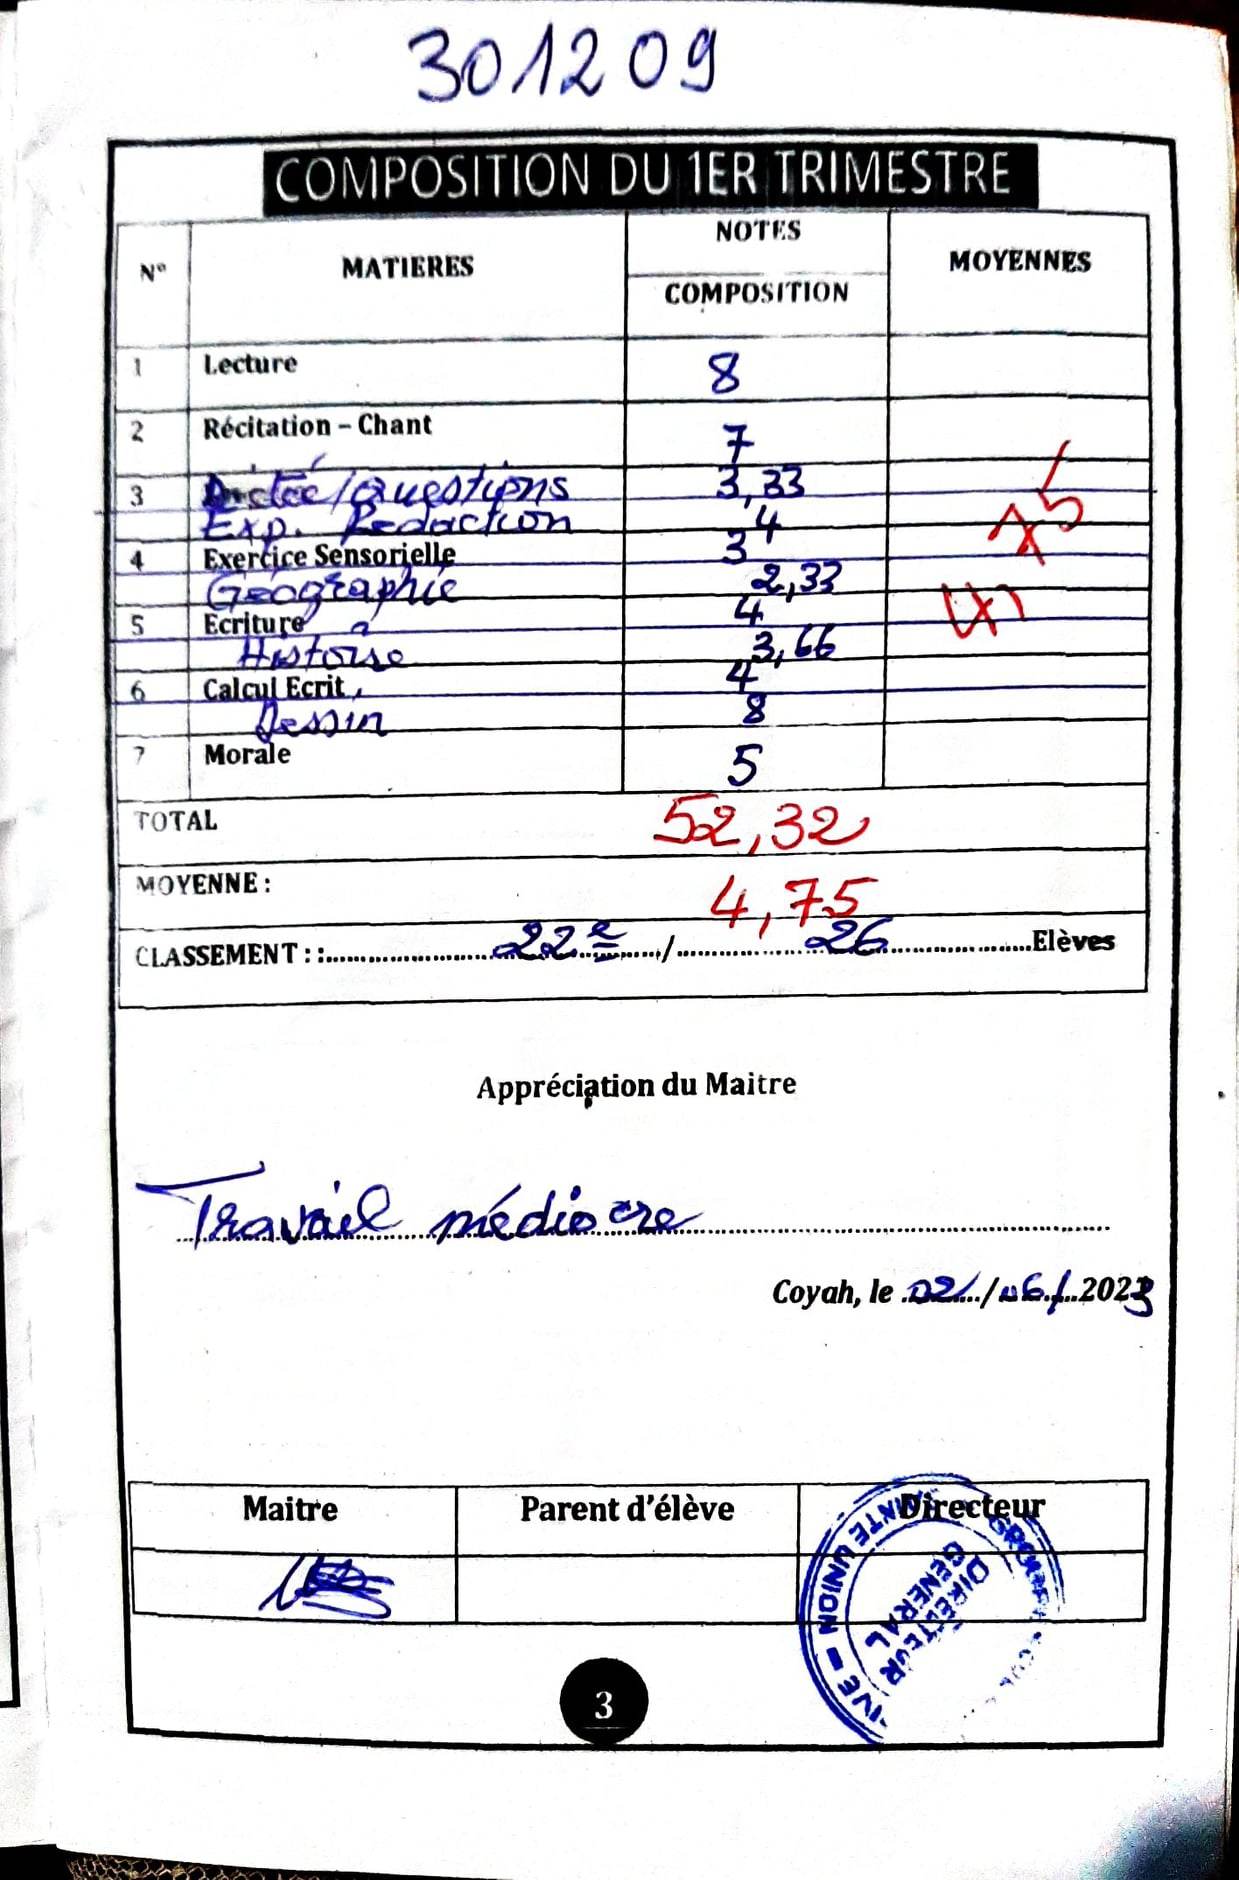 301209
COMPOSITION DU 1ER TRIMESTRE
N° MATIERES NOTES COMPOSITION MOYENNES
1 Lecture 8
2 Récitation – Chant 7
3 Dictée/Questions 3,33
Exp. Redaction 4
4 Exercice Sensorielle 3
Géographie 2,33
5 Ecriture 4
Histoire 3,66
6 Calcul Ecrit 4
Dessin 8
7 Morale 5
TOTAL 52,32
MOYENNE : 4,75
CLASSEMENT : : 22e / 26 Elèves
Appréciation du Maitre
Travail médiocre
Coyah, le 02/06/2023
Maitre Parent d'élève Directeur
DIRECTEUR
GENERAL
UNION
3